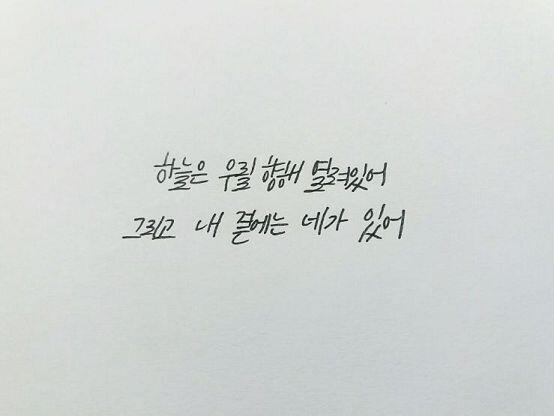 하늘은 우릴 향해 열려있어
그리고 내 곁에는 네가 있어